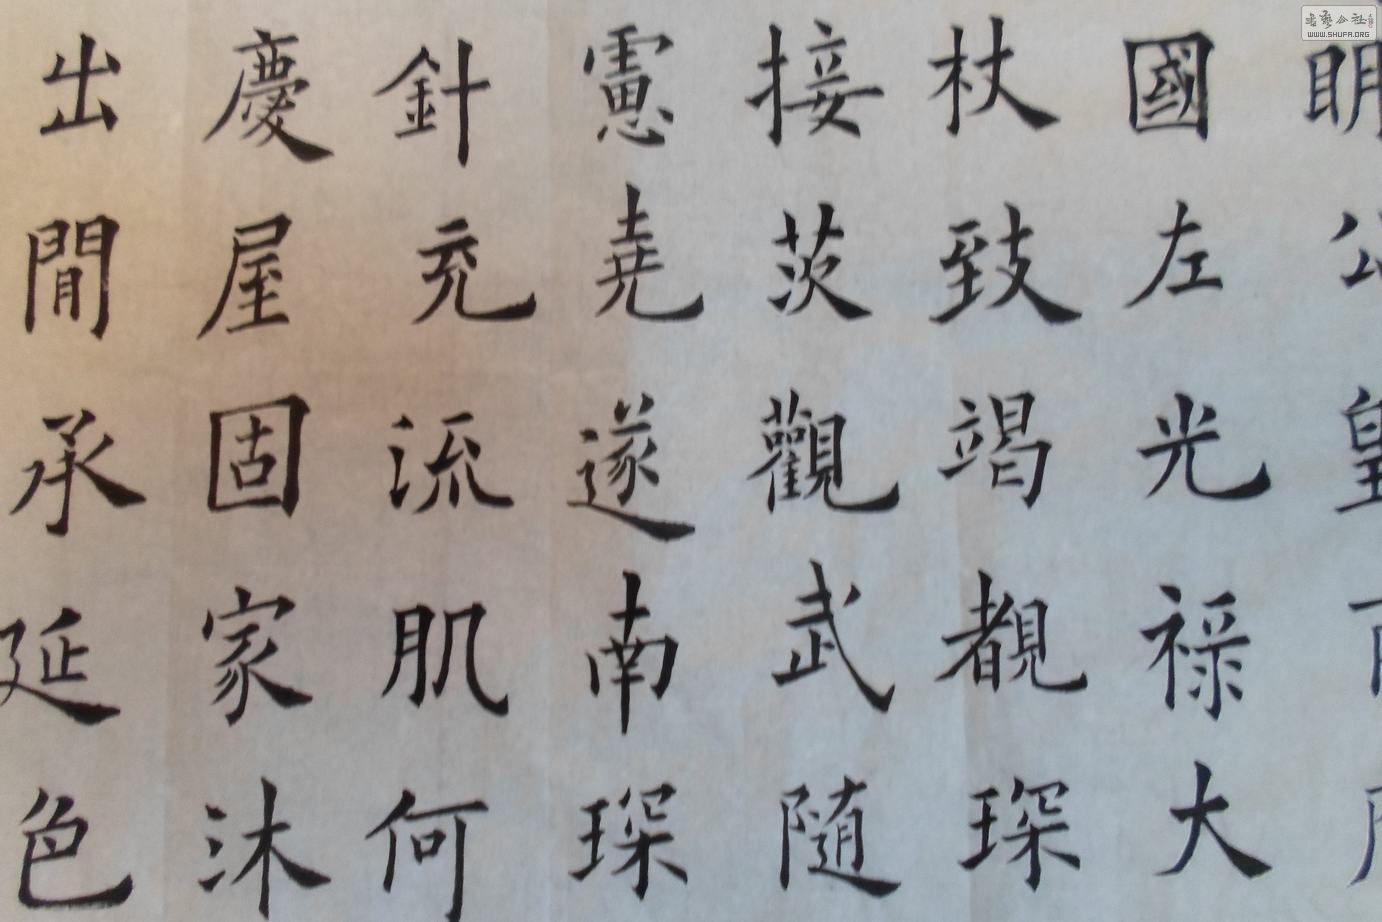 明公皇
國左光祿大
杖致竭覩琛
接茨觀武隨
憲堯遂南琛
針充流肌何
慶屋固家沐
出閒承延色
書藝公社
WWW.SHUFA.ORG